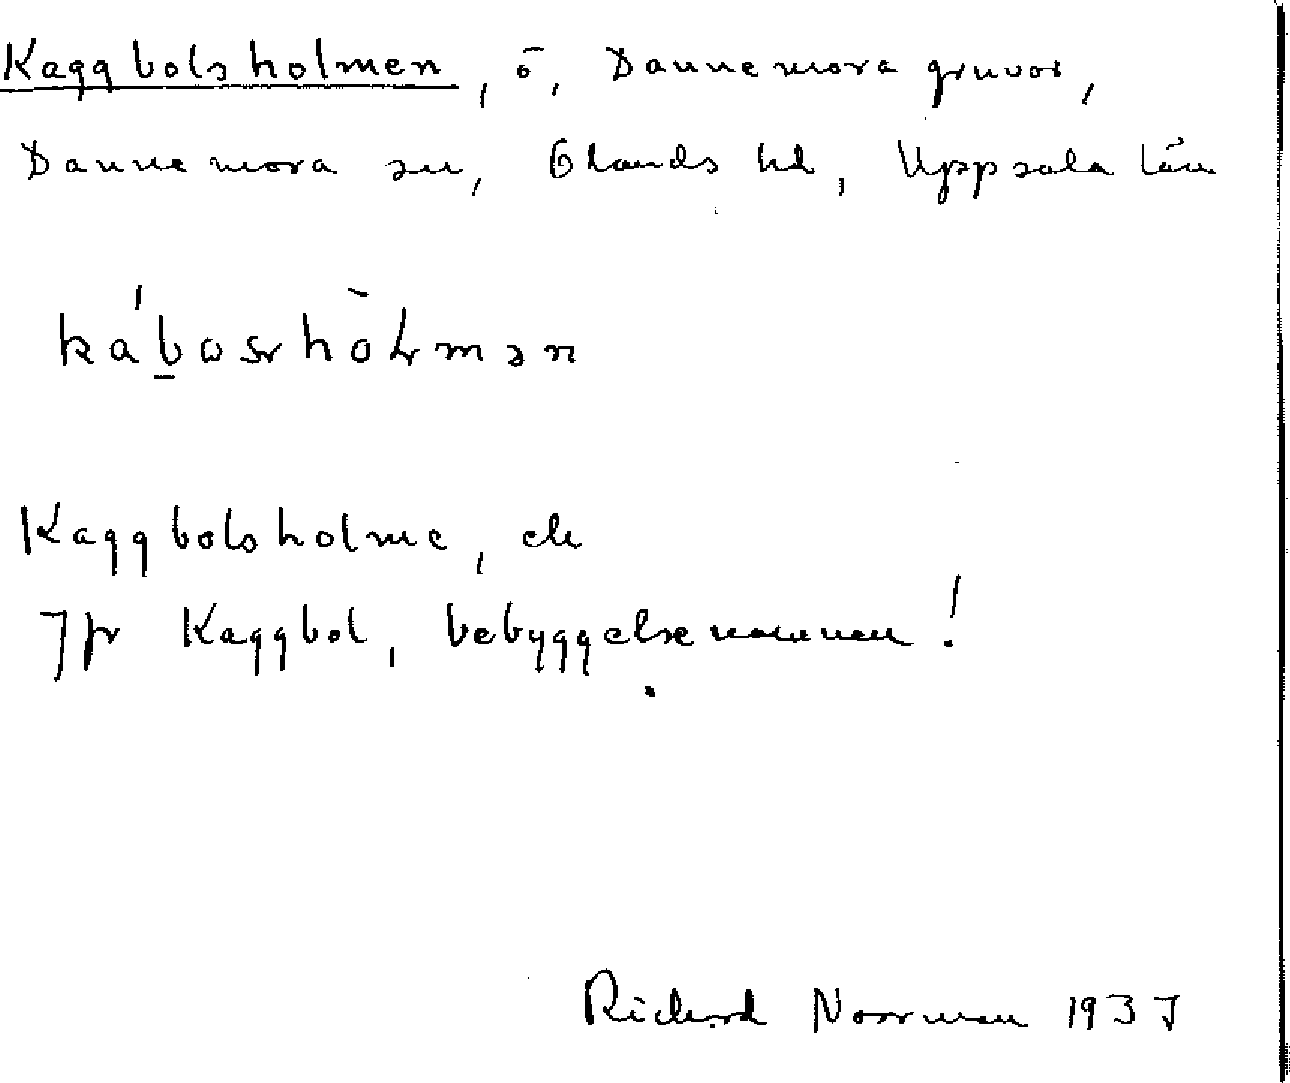 Kaggbolsholmen, ö, Dannemora gruvor,
Dannemora sn, Olands hd, Uppsala län
Kaggbolsholme, ek
Jfr Kaggbol, bebyggelsenamnen!
Richard Norrman 1937